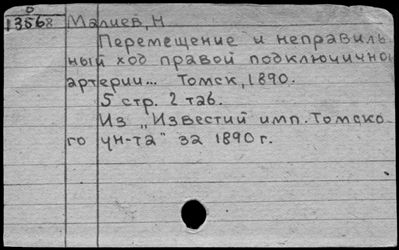 0
13568 Малиев, Н
Перемещение и неправиль
ный ход правой подключично
артерии... Томск, 1890.
5 стр. 2 таб.
Из „Известий имп. Томско
го ун-та" за 1890 г.